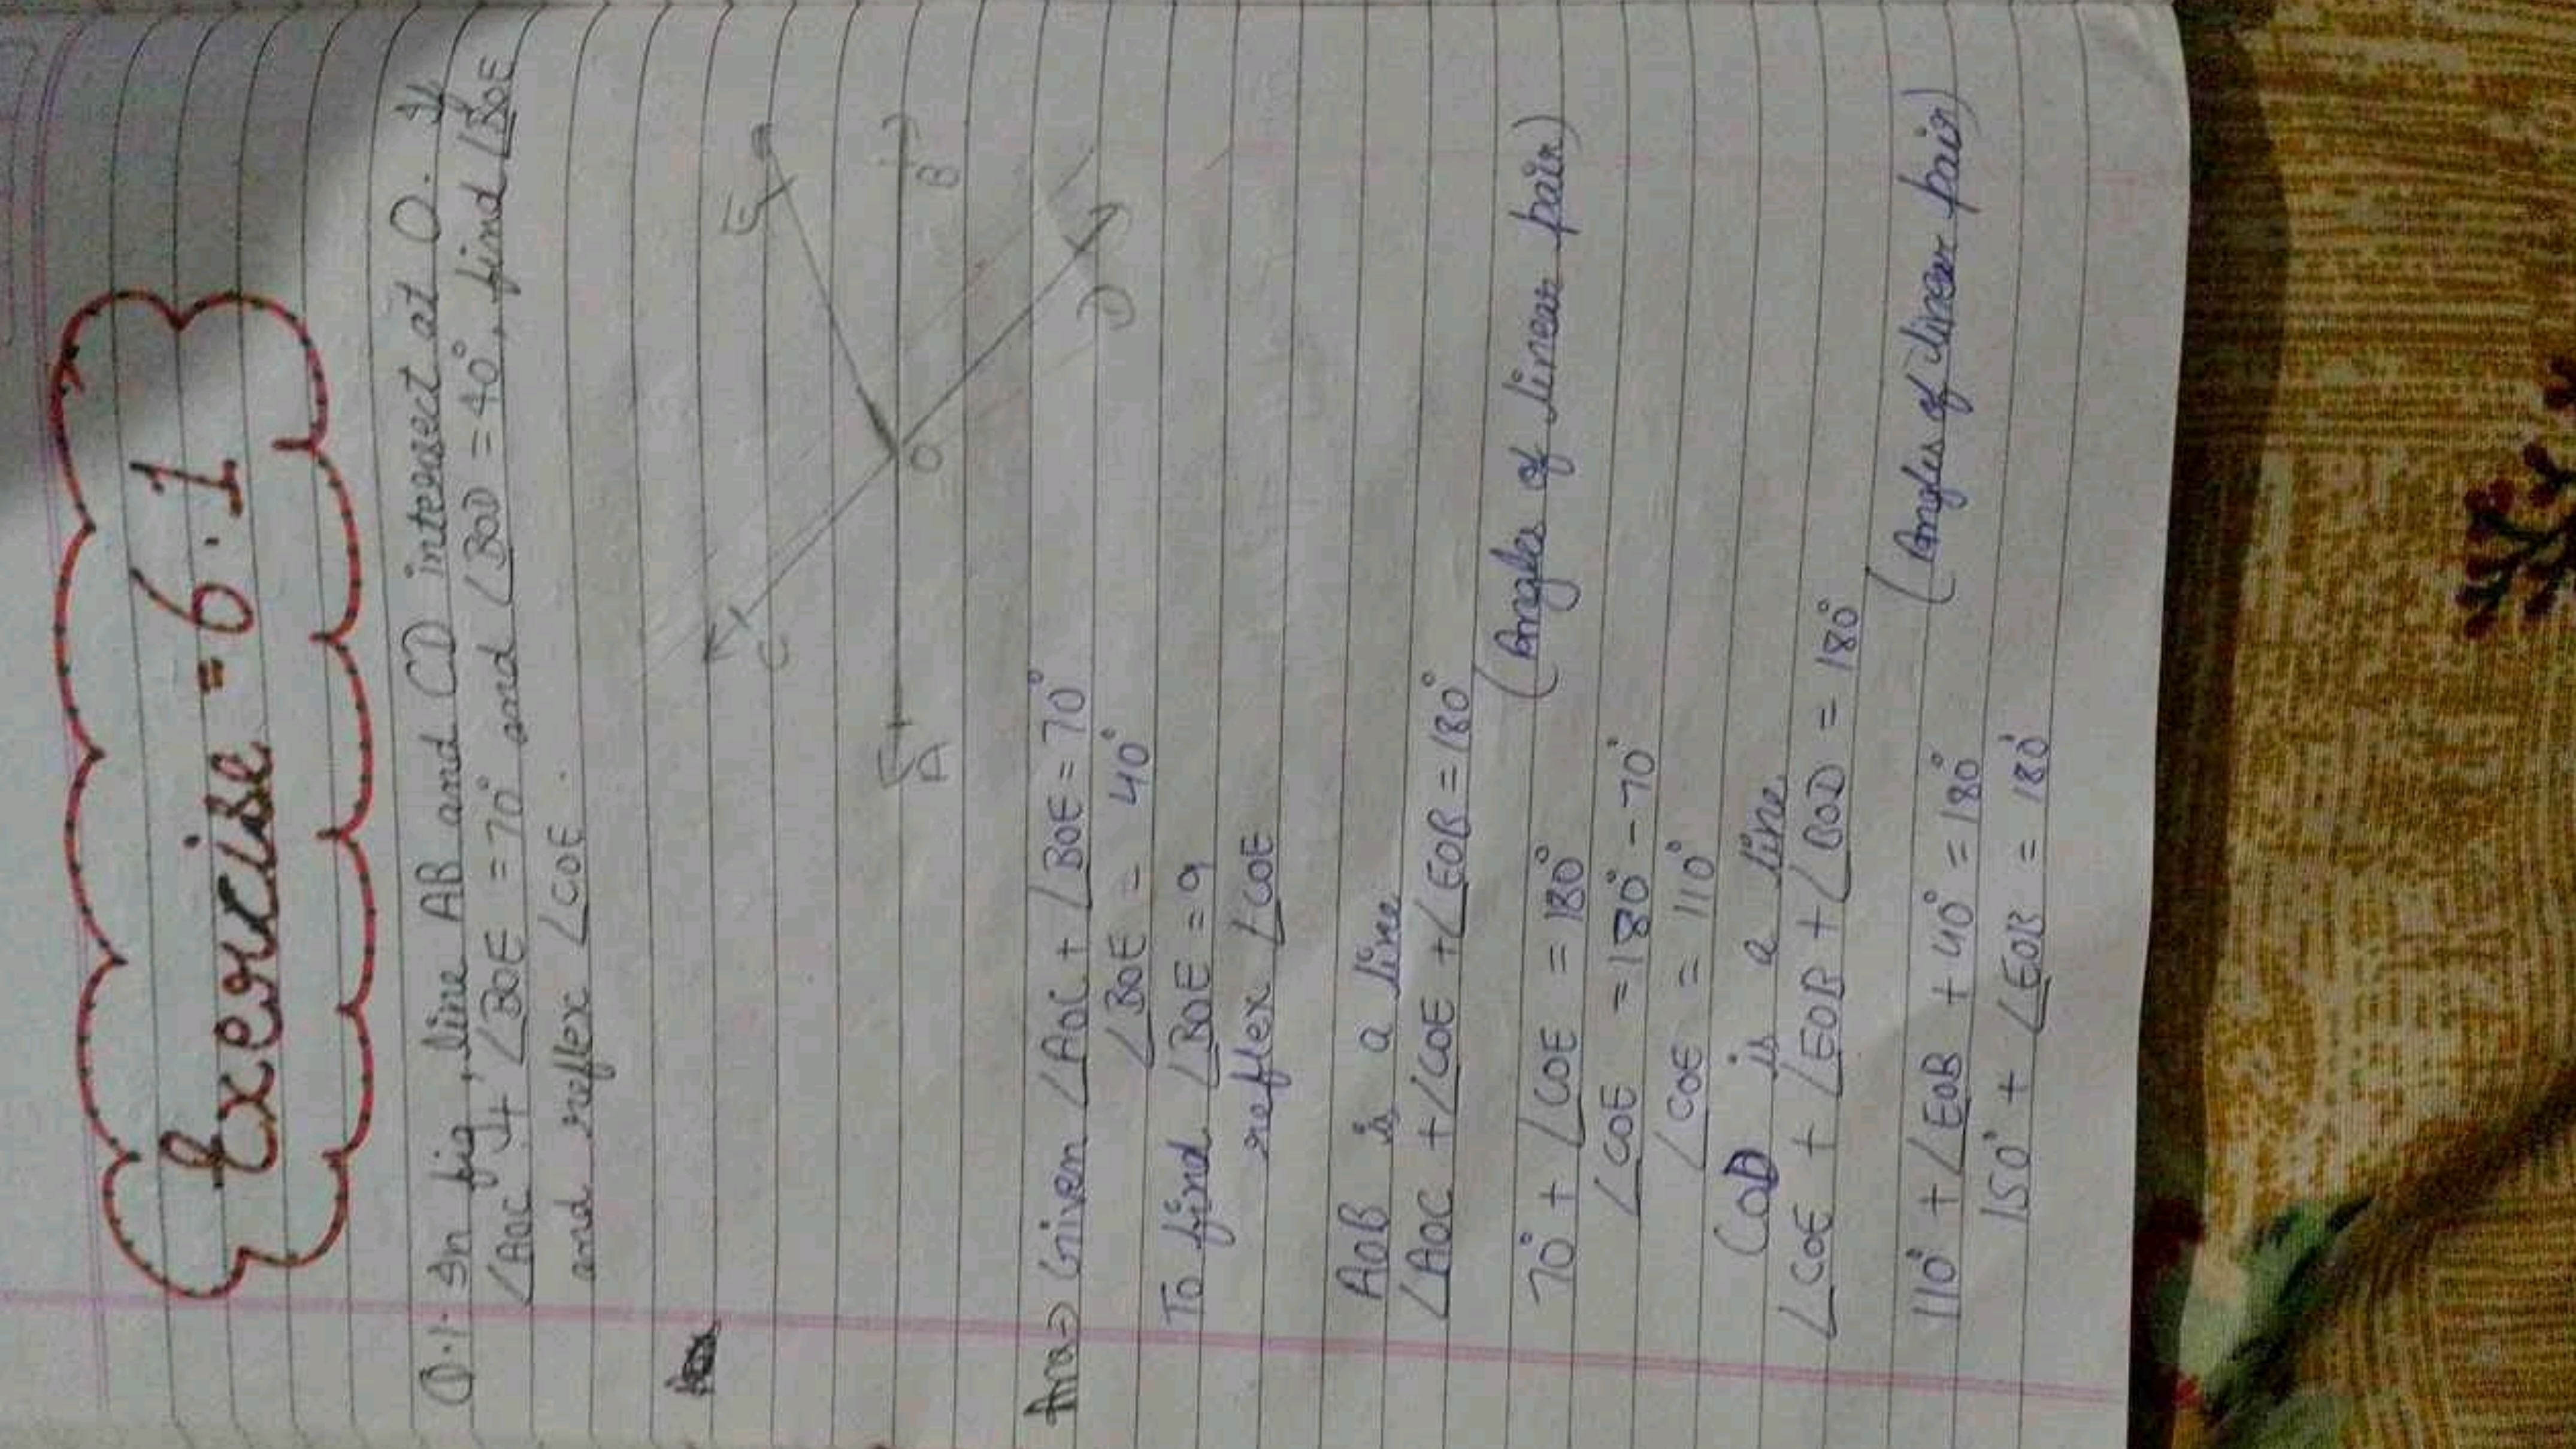 Exercise = 6.1
Q.1. In fig, line AB and CD intersect at O. If
∠AOC + ∠BOE = 70° and ∠BOD = 40°, find ∠BOE
and reflex ∠COE.
E
C
A
O
B
D
Ans→ Given ∠AOC + ∠BOE = 70°
∠BOE = 40°
To find ∠BOE = ?
reflex ∠COE
AOB is a line
∠AOC + ∠COE + ∠EOB = 180°
(Angles of linear pair)
70° + ∠COE = 180°
∠COE = 180° - 70°
∠COE = 110°
COD is a line
∠COE + ∠EOB + ∠BOD = 180°
(Angles of linear pair)
110° + ∠EOB + 40° = 180°
150° + ∠EOB = 180°